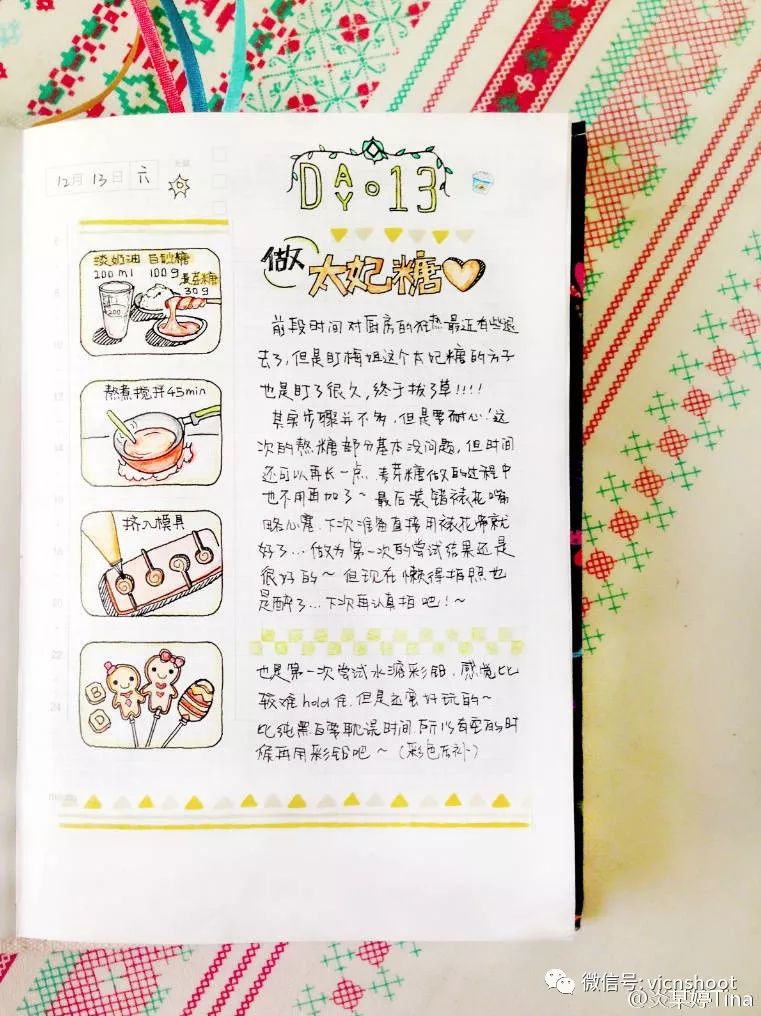 12月 13日 六
DAY 13
淡奶油 白砂糖
200ml 100g
麦芽糖
30g
200
熬煮搅拌45min
挤入模具
B
D
做太妃糖
前段时间对厨房的狂热最近有些退
去了,但是盯梅姐这个太妃糖的方子
也是盯了很久,终于拔了草!!!!
其实步骤并不多,但是要耐心!这
次的熬糖部分基本没问题,但时间
还可以再长一点,麦芽糖做的过程中
也不用再加了~最后装错裱花嘴
略心塞,下次准备直接用裱花带就
好了...做为第一次的尝试结果还是
很好的~但现在懒得拍照也
是醉了...下次再认真拍吧!~
也是第一次尝试水溶彩铅,感觉比
较难hold住,但是还蛮好玩的~
比纯黑白要耽误时间,所以有空的时
候再用彩铅吧~(彩色后补)
memo
6
8
10
12
14
16
18
20
22
24
微信号: vicnshoot
@炎草婷Tina